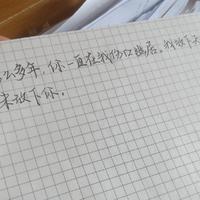 么多年，你一直在我伤口幽居，我放下天
未放下你。